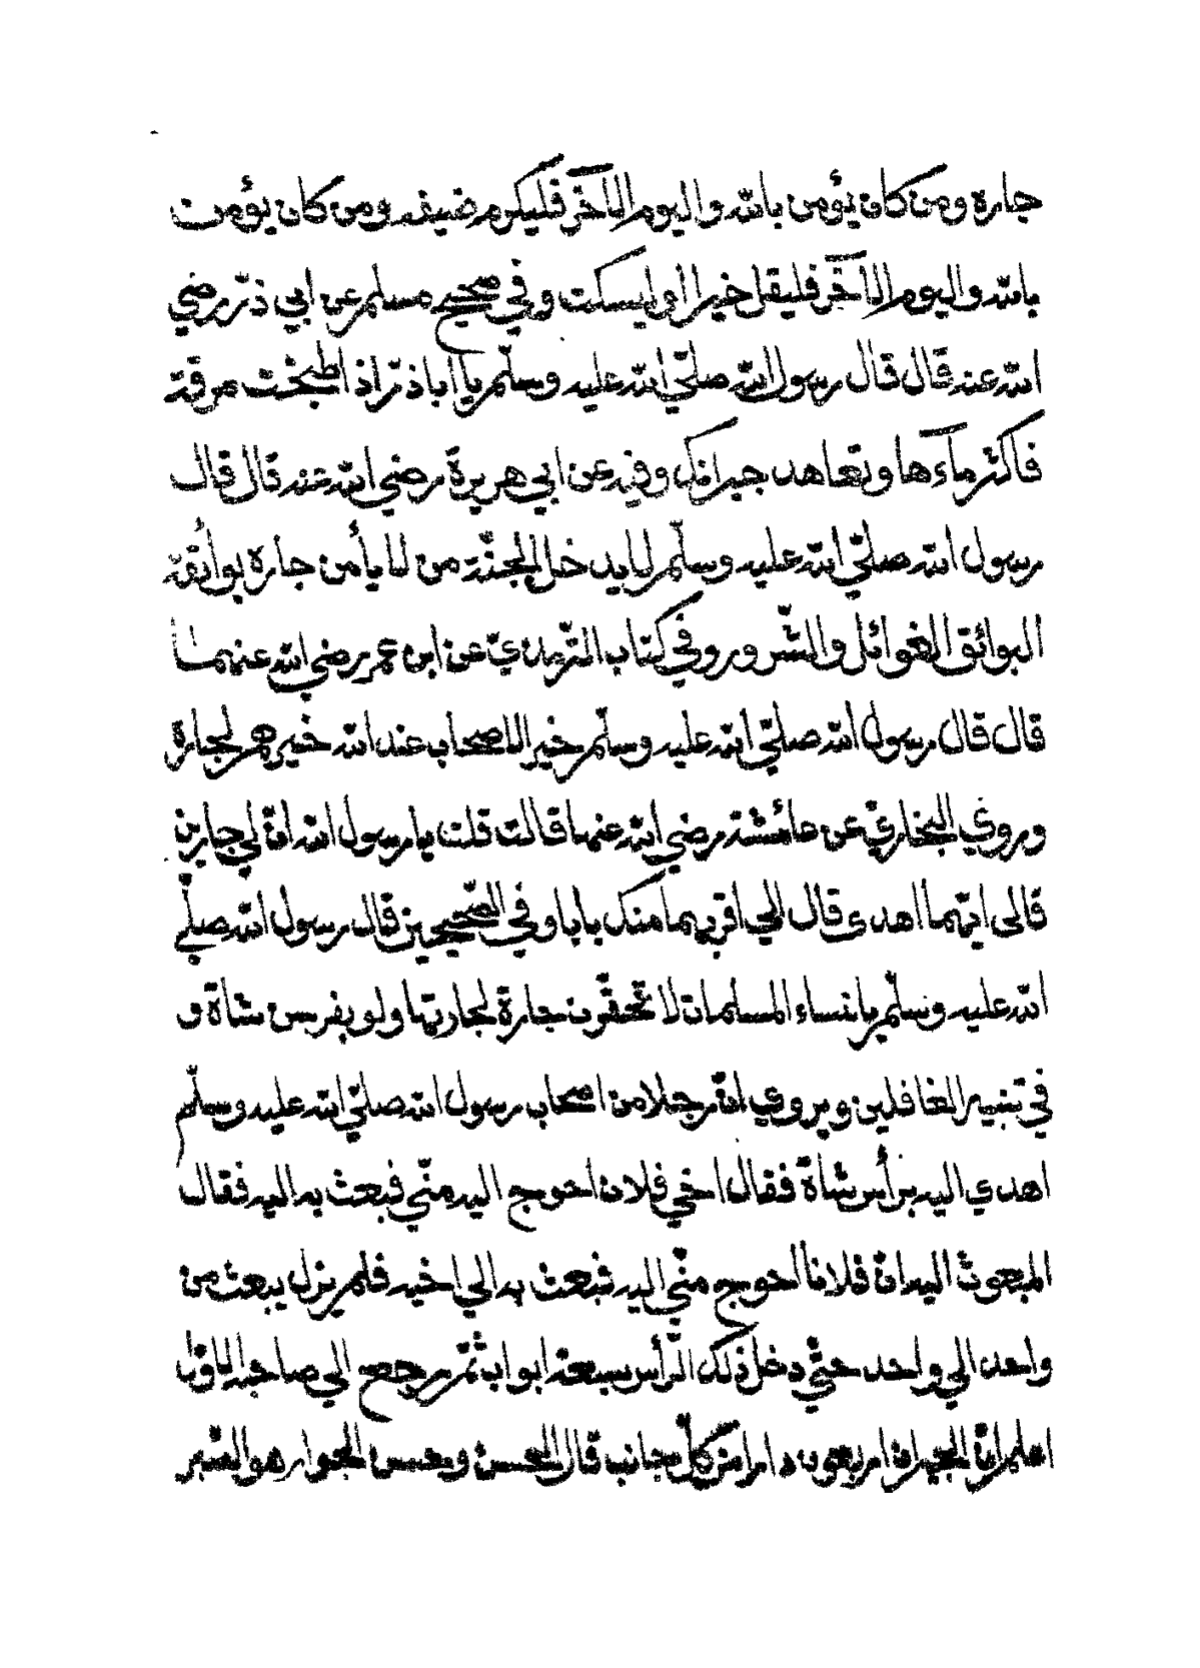 جاره ومن كان يؤمن بالله واليوم الآخر فليكرم ضيفه ومن كان يؤمن
بالله واليوم الآخر فليقل خيرا او ليسكت وفي صحيح مسلم عن ابي ذرّ رضي
الله عنه قال قال رسول الله صلّي الله عليه وسلّم يا اباذرّ اذا طبخت مرقة
فاكثر مآءها وتعاهد جيرانك وفيه عن ابي هريرة رضي الله عنه قال قال
رسول الله صلّي الله عليه وسلّم لا يدخل الجنّة من لا يأمن جاره بوائقه
البوائق الغوائل والشّرور وفي كتاب التّرمذيّ عن ابن عمر رضي الله عنهما
قال قال رسول الله صلّي الله عليه وسلّم خير الاصحاب عند الله خيرهم لجاره
وروي البخاريّ عن عائشة رضي الله عنها قالت قلت يا رسول الله انّ لي جارين
فالي ايّهما اهدي قال الي اقربهما منك بابا وفي الصّحيحين قال رسول الله صلّي
الله عليه وسلّم يا نساء المسلمات لا تحقّرن جارة لجارتها ولو بفرسن شاة و
في تنبيه الغافلين ويروي انّ رجلا من اصحاب رسول الله صلّي الله عليه وسلّم
اهدي اليه برأس شاة فقال اخي فلان احوج اليه منّي فبعث به اليه فقال
المبعوث اليه انّ فلانا احوج منّي اليه فبعث به الي اخيه فلم يزل يبعث من
واحد الي واحد حتّي دخل ذلك الرّأس سبعة ابواب ثمّ رجع الي صاحبه الاوّل
اعلم انّ الجيران اربعون دارا من كلّ جانب قال الحسن وحسن الجوار هو الصّبر